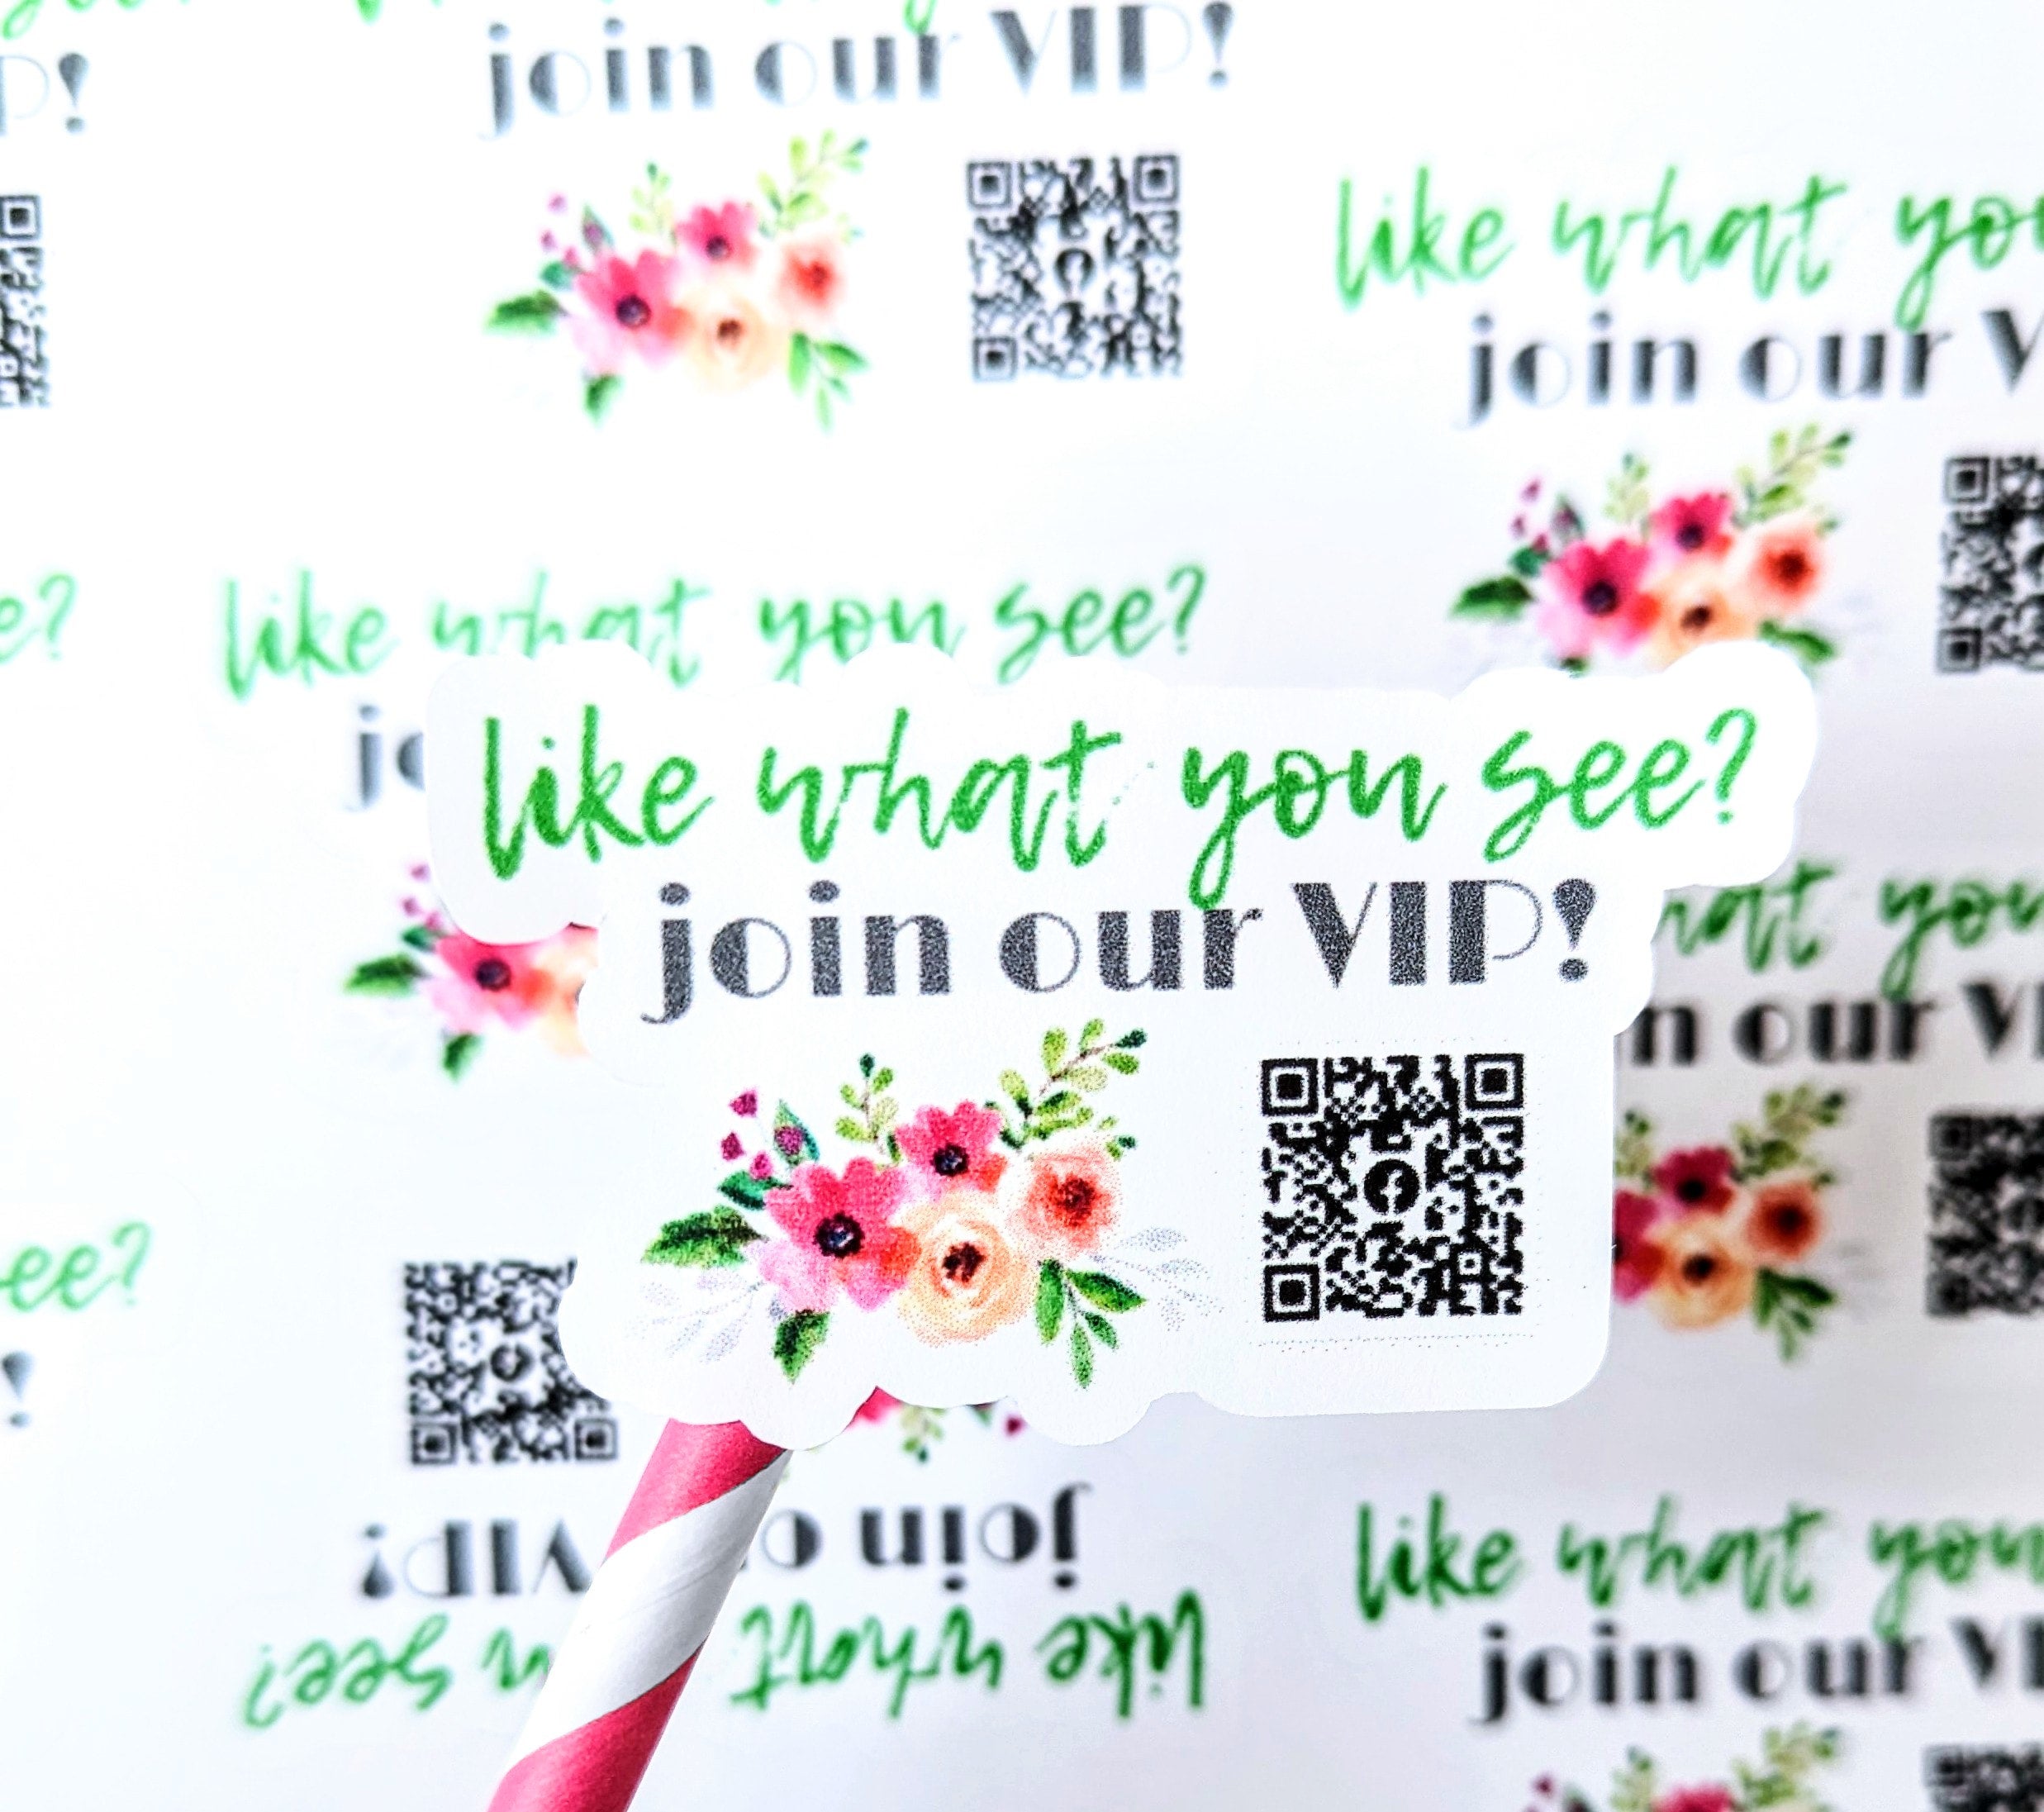 join our VIP!
P!
like what you
join our V
e?
like what you see?
jo
like what you see?
join our VIP!
hat you
n our VI
see?
!
join o VIP!
like what n see?
like what you
join our VI